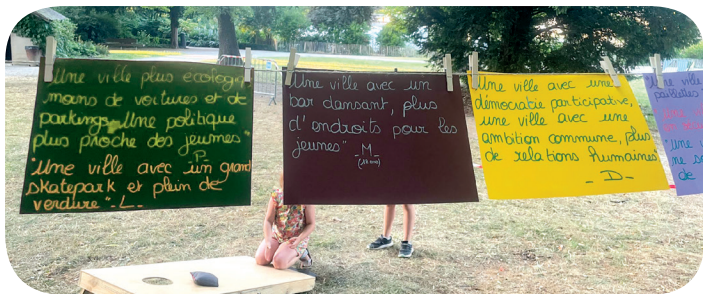 Une ville plus écologie
moins de voitures et de
parkings. Une politique
plus proche des jeunes"
P.
"Une ville avec un grand
skatepark et plein de
verdure". L.
"Une ville avec un
bar dansant, plus
d'endroits pour les
jeunes" M
Une ville avec une
démocratie participative,
une ville avec une
ambition commune, plus
de relations humaines"
- D -
"Une ville
paillettes
"Une v
ne s
de